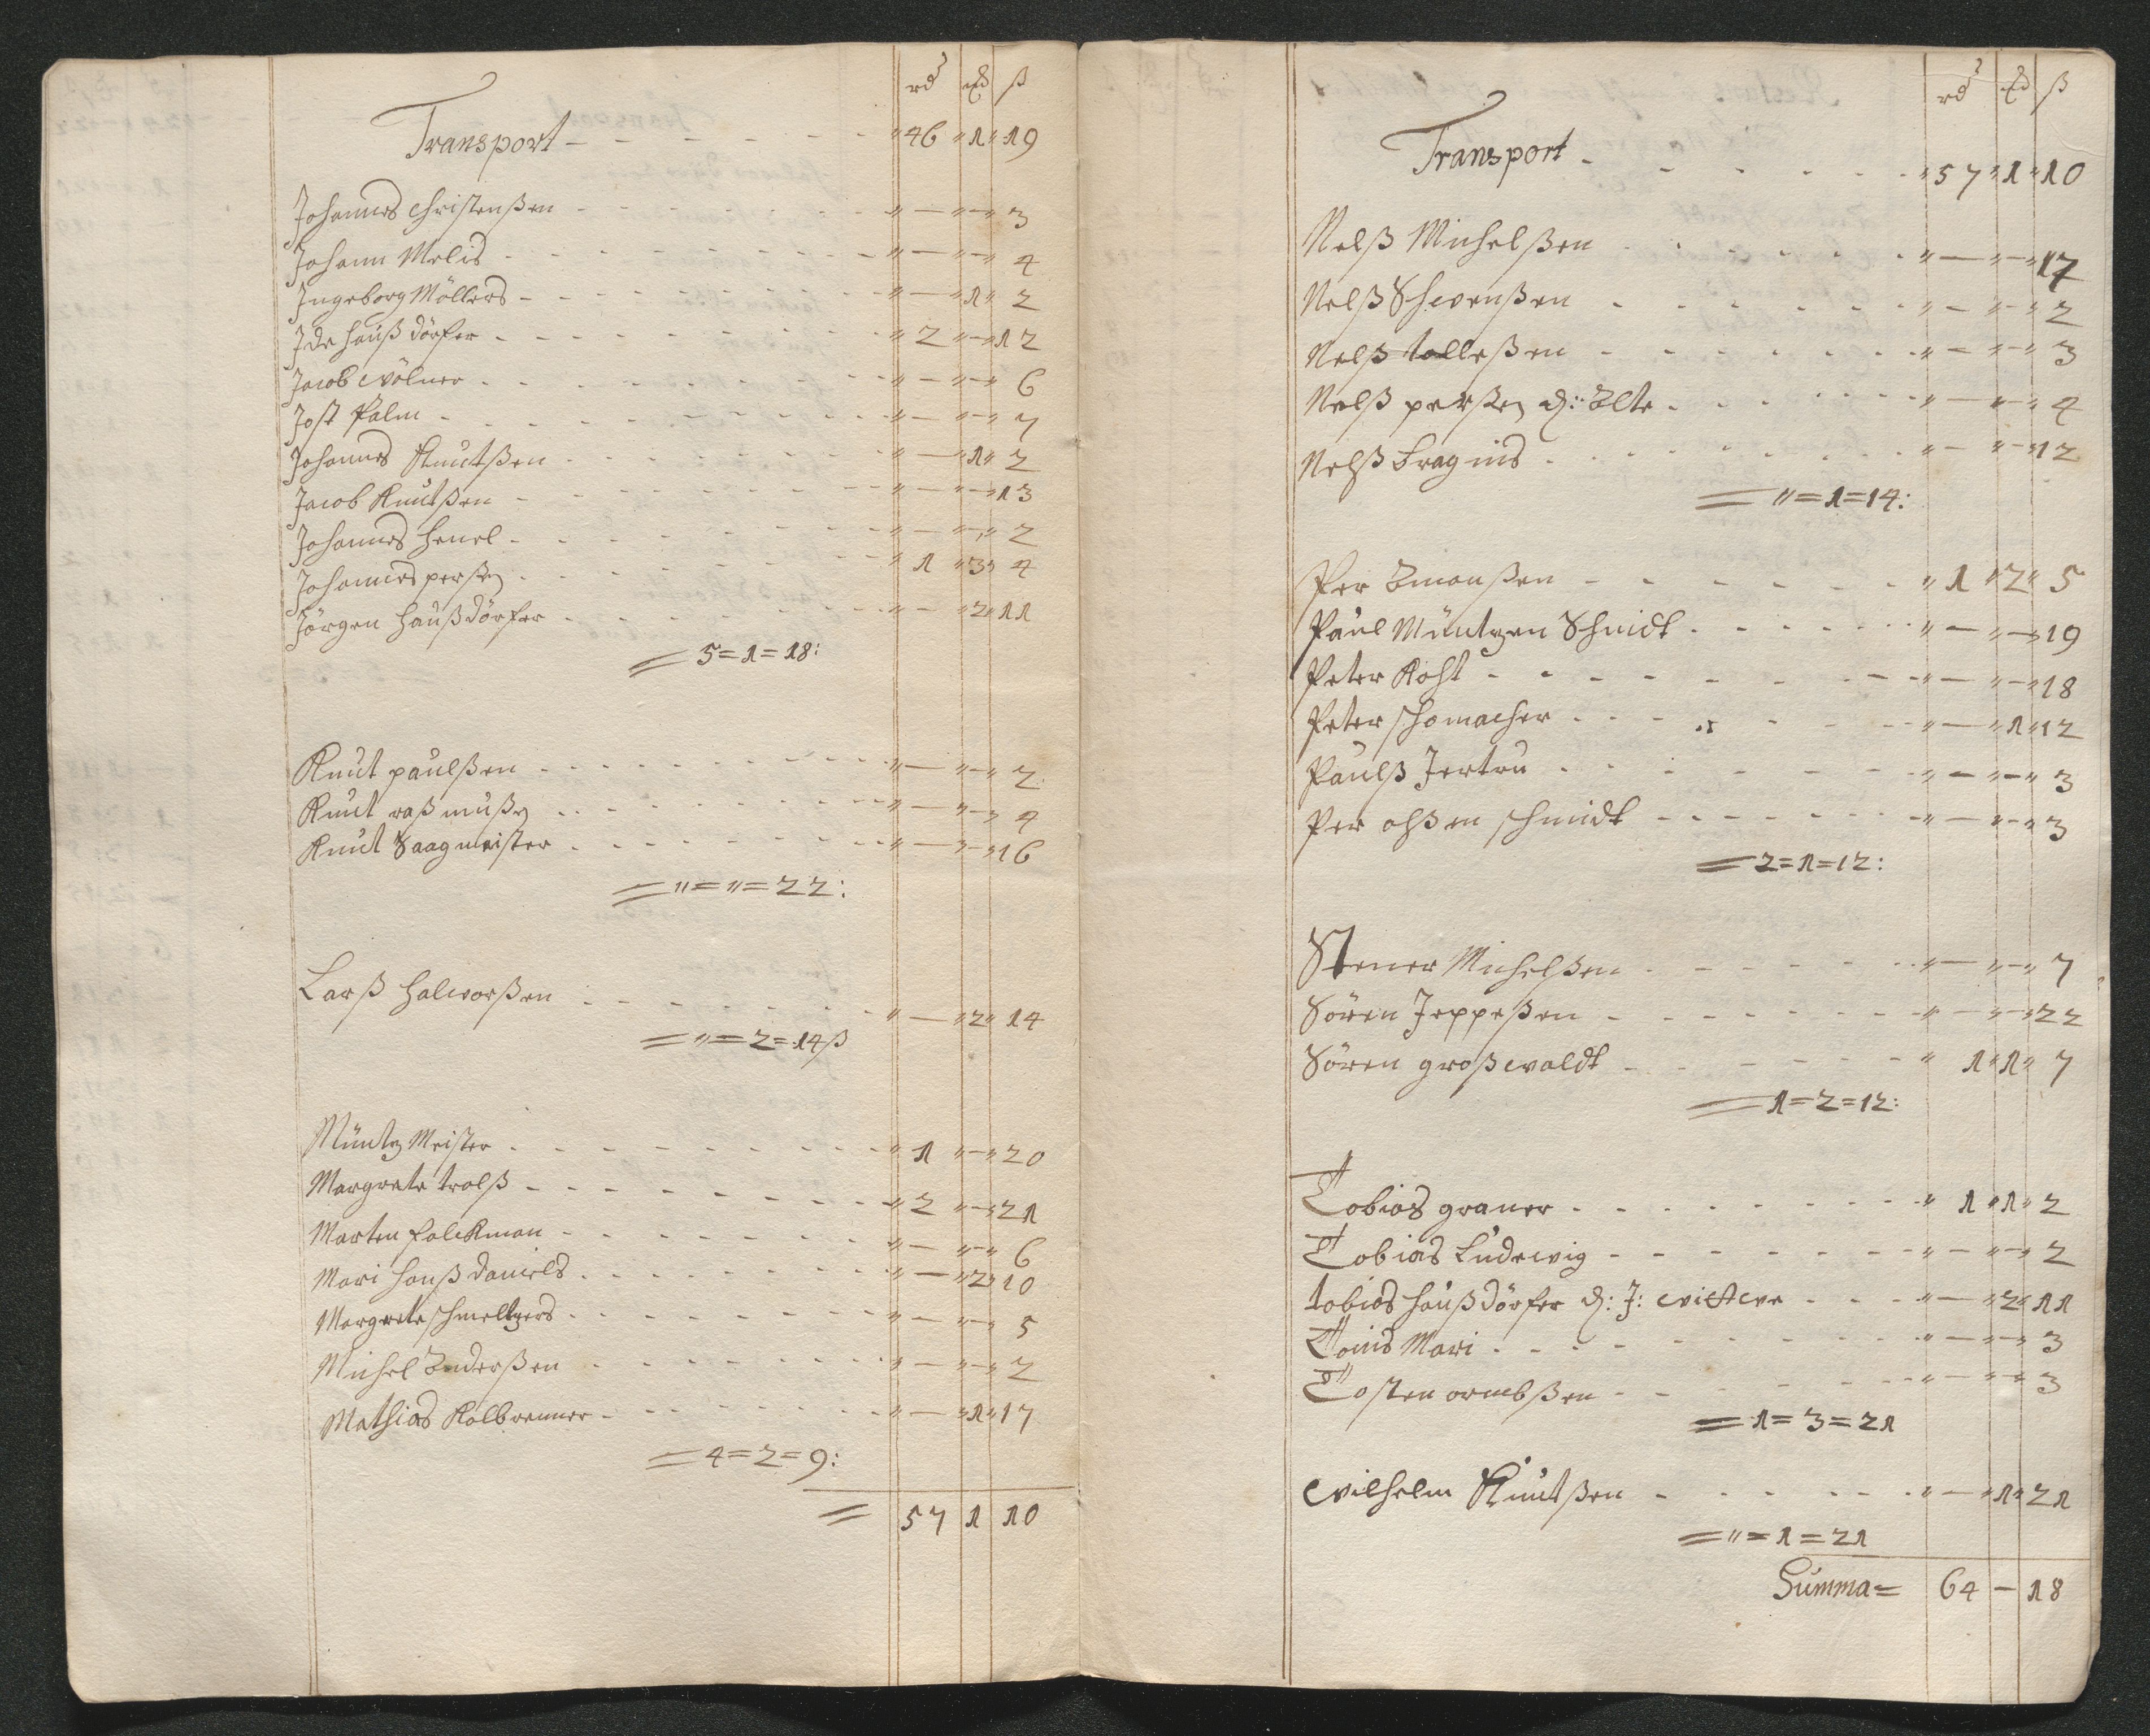 rd ß
Transport - - - - - - " 46 " 1 " 19
Johannes Christenßen - - - - - - " — " — " 3
Johann Melis - - - - - - " — " — " 4
Ingeborg Möllers - - - - - - " — " 1 " 2
Ide Haußdörfer - - - - - - " 2 " — " 12
Jacob Cölner - - - - - - " — " — " 6
Jost Palm - - - - - - " — " — " 7
Johannes Knutßen - - - - - - " — " 1 " 2
Jacob Knutßen - - - - - - " — " — " 13
Johannes Henel - - - - - - " — " — " 2
Johannes perß - - - - - - " 1 " 3 " 4
Jörgen Haußdörfer - - - - - - " — " 2 " 11
= 5 = 1 = 18:
Knut paulßen - - - - - - " — " — " 2
Knut raßmuß - - - - - - " — " — " 4
Knut Saagmeister - - - - - - " — " — " 16
= " = " = 22:
Larß Halworßen - - - - - - " — " 2 " 14
= " = 2 = 14 ß
Müntz Meister - - - - - - " 1 " — " 20
Margrete trolß - - - - - - " 2 " — " 21
Marten falckman - - - - - - " — " — " 6
Mari Hanß Daniels - - - - - - " — " 2 " 10
Margrete schmeltzers - - - - - - " — " — " 5
Michel Anderßen - - - - - - " — " — " 2
Mathias Kolbrenner - - - - - - " — " 1 " 17
= 4 = 2 = 9:
= 57 1 10
rd ß
Transport - - - - - - " 57 " 1 " 10
Nelß Michelßen - - - - - - " — " — " 17
Nelß Shwenßen - - - - - - " — " — " 2
Nelß tolleßen - - - - - - " — " — " 3
Nelß perß d: Elte - - - - - - " — " — " 4
Nelß - - - - - - " — " — " 12
= " = 1 = 14:
Per Amonßen - - - - - - " 1 " 2 " 5
Paul Müntzen Schmidt - - - - - - " — " — " 19
Peter Koht - - - - - - " — " — " 18
Peter schomacher - - - - - - " — " 1 " 12
Paulß Jertru - - - - - - " — " — " 3
Per olßen schmidt - - - - - - " — " — " 3
= 2 = 1 = 12:
Stener Michelßen - - - - - - " — " — " 7
Sören Jeppeßen - - - - - - " — " — " 22
Sören großwaldt - - - - - - " 1 " 1 " 7
= 1 = 2 = 12:
Tobias graner - - - - - - " 1 " 1 " 2
Tobias Ludewig - - - - - - " — " — " 2
tobias Haußdörfer d: J: wittwe - - - " — " 2 " 11
Toms Mari - - - - - - " — " — " 3
Tosten ormbßen - - - - - - " — " — " 3
= 1 = 3 = 21
Wilhelm Knutßen - - - - - - " — " 1 " 21
= " = 1 = 21
Summa = 64 — 18